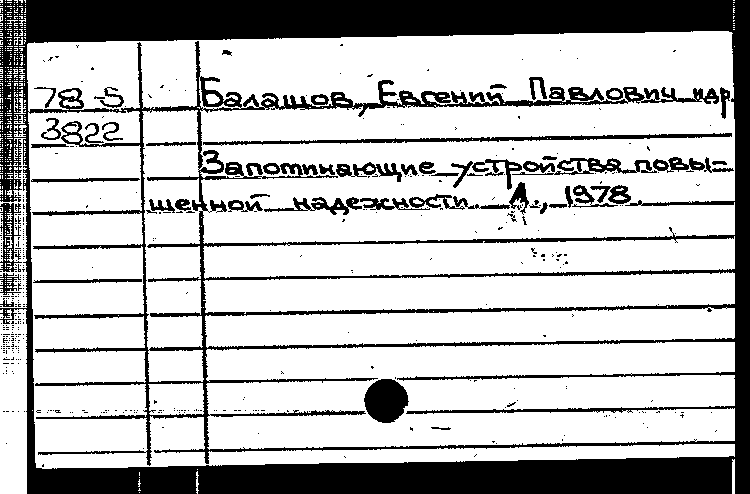 78-5 Балашов, Евгений Павлович и др.
3822
Запоминающие устройства повы-
шенной надежности. Л., 1978.